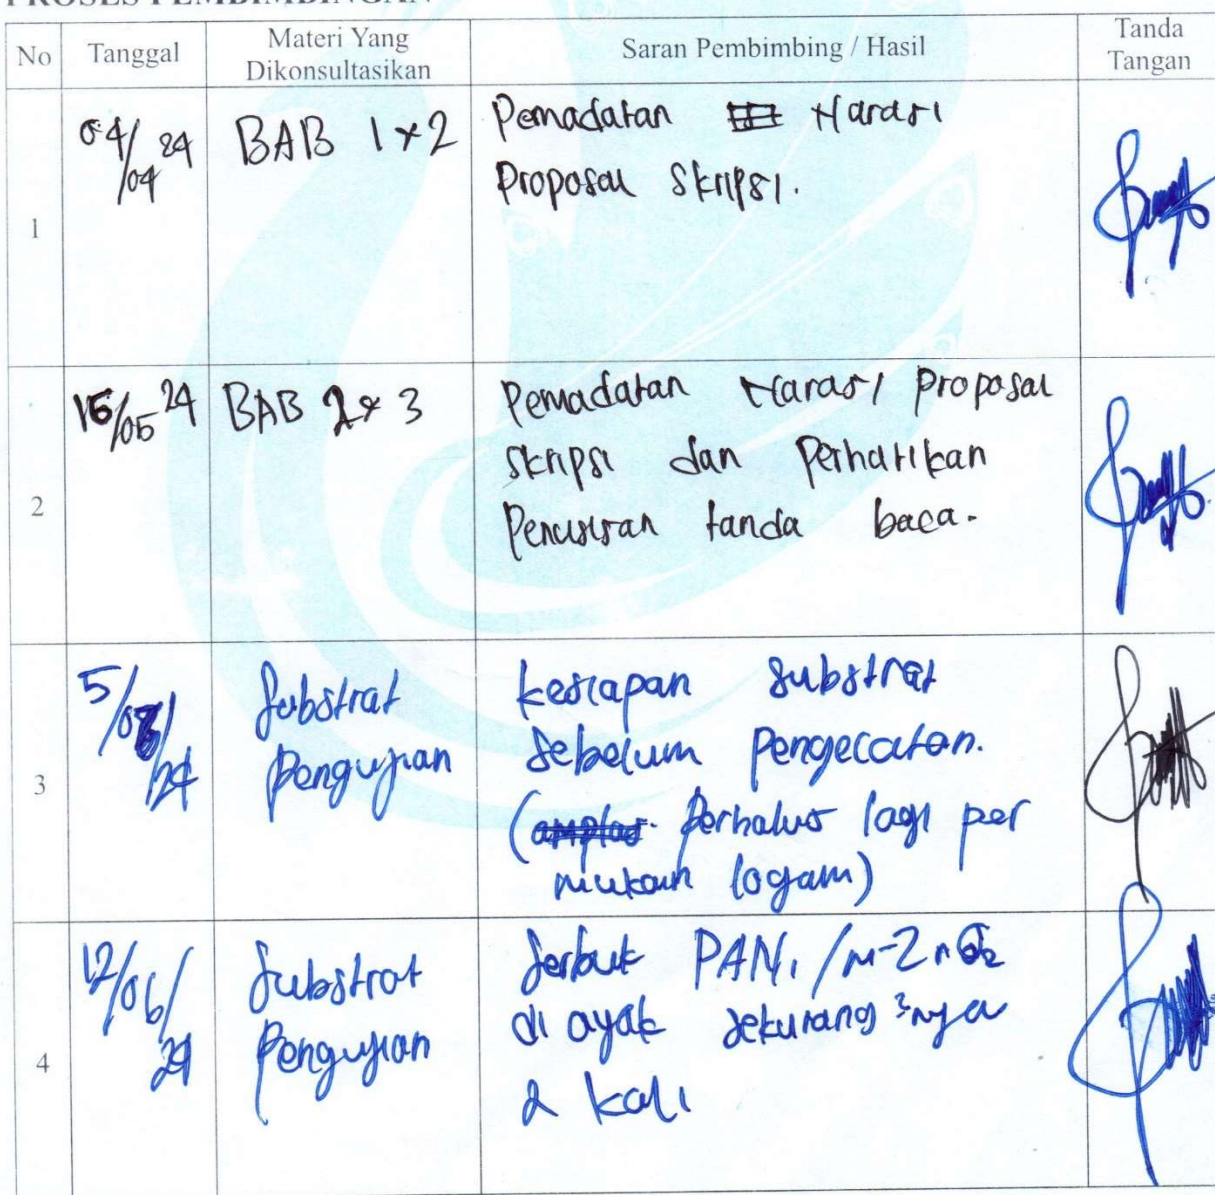 PROSES PEMBIMBINGAN
No Tanggal Materi Yang Dikonsultasikan Saran Pembimbing / Hasil Tanda Tangan
1 04/04 24 BAB 1 & 2 Pemadatan Narasi
Proposal Skripsi.
2 15/05 24 BAB 2 & 3 Pemadatan Narasi proposal
skripsi dan Perhatikan
Penulisan tanda baca.
3 5/06/24 Substrat Pengujian kesiapan substrat
sebelum Pengecatan.
(amplas Perhalus lagi per
mukaan logam)
4 12/06/24 Substrat Pengujian Serbuk PANi/n-ZnO
di ayak sekurang ²nya
2 kali